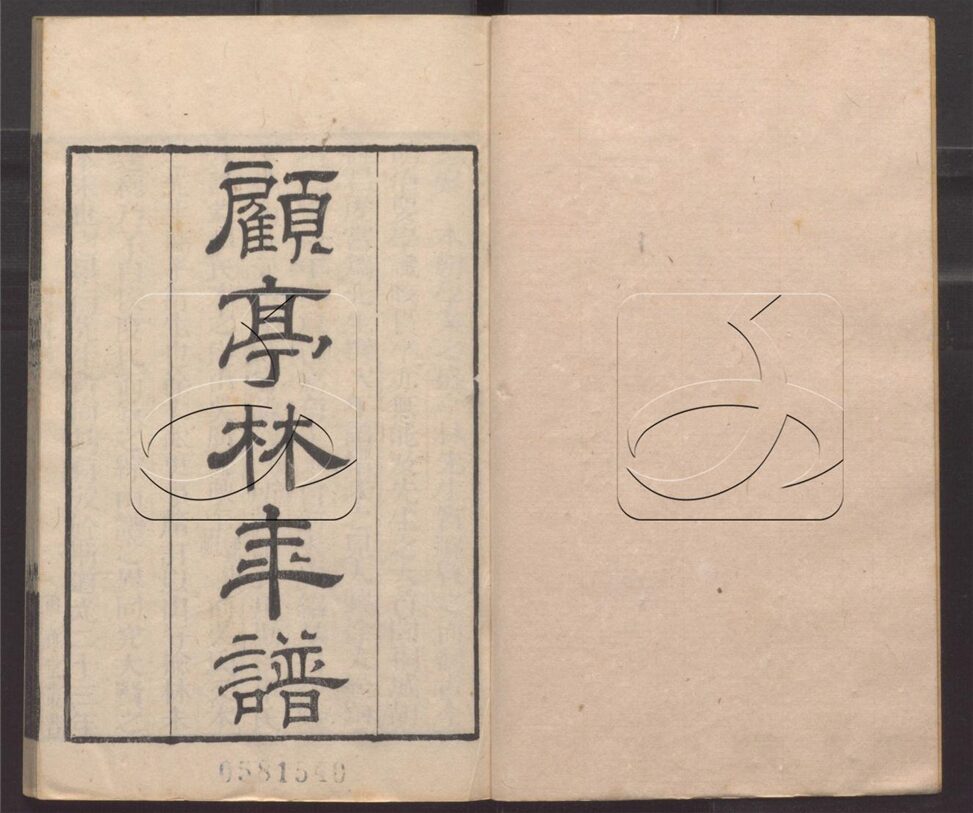 顧亭林年譜
0581540